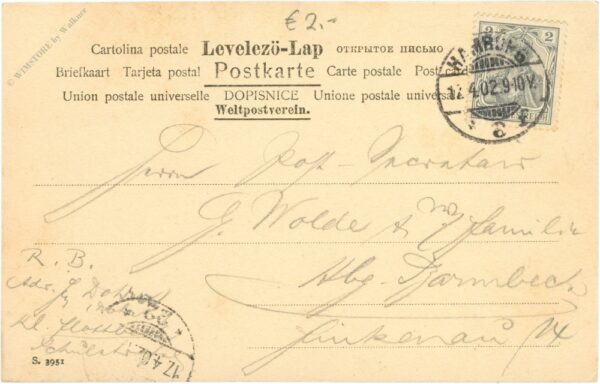 © WIMSTORE by Walkner
€ 2.-
Cartolina postale Levelezö-Lap ОТКРЫТОЕ ПИСЬМО
Briefkaart Tarjeta postal Postkarte Carte postale Post
Union postale universelle DOPISNICE Unione postale universa
Weltpostverein.
2 2
HAMBURG
17.4.02.9-10V.
* 6
Herrn Post-Secretair
G. Wolde & Familie
Hbg-Barmbeck
Finkenau 14
R. B.
17.4.02
S. 3951